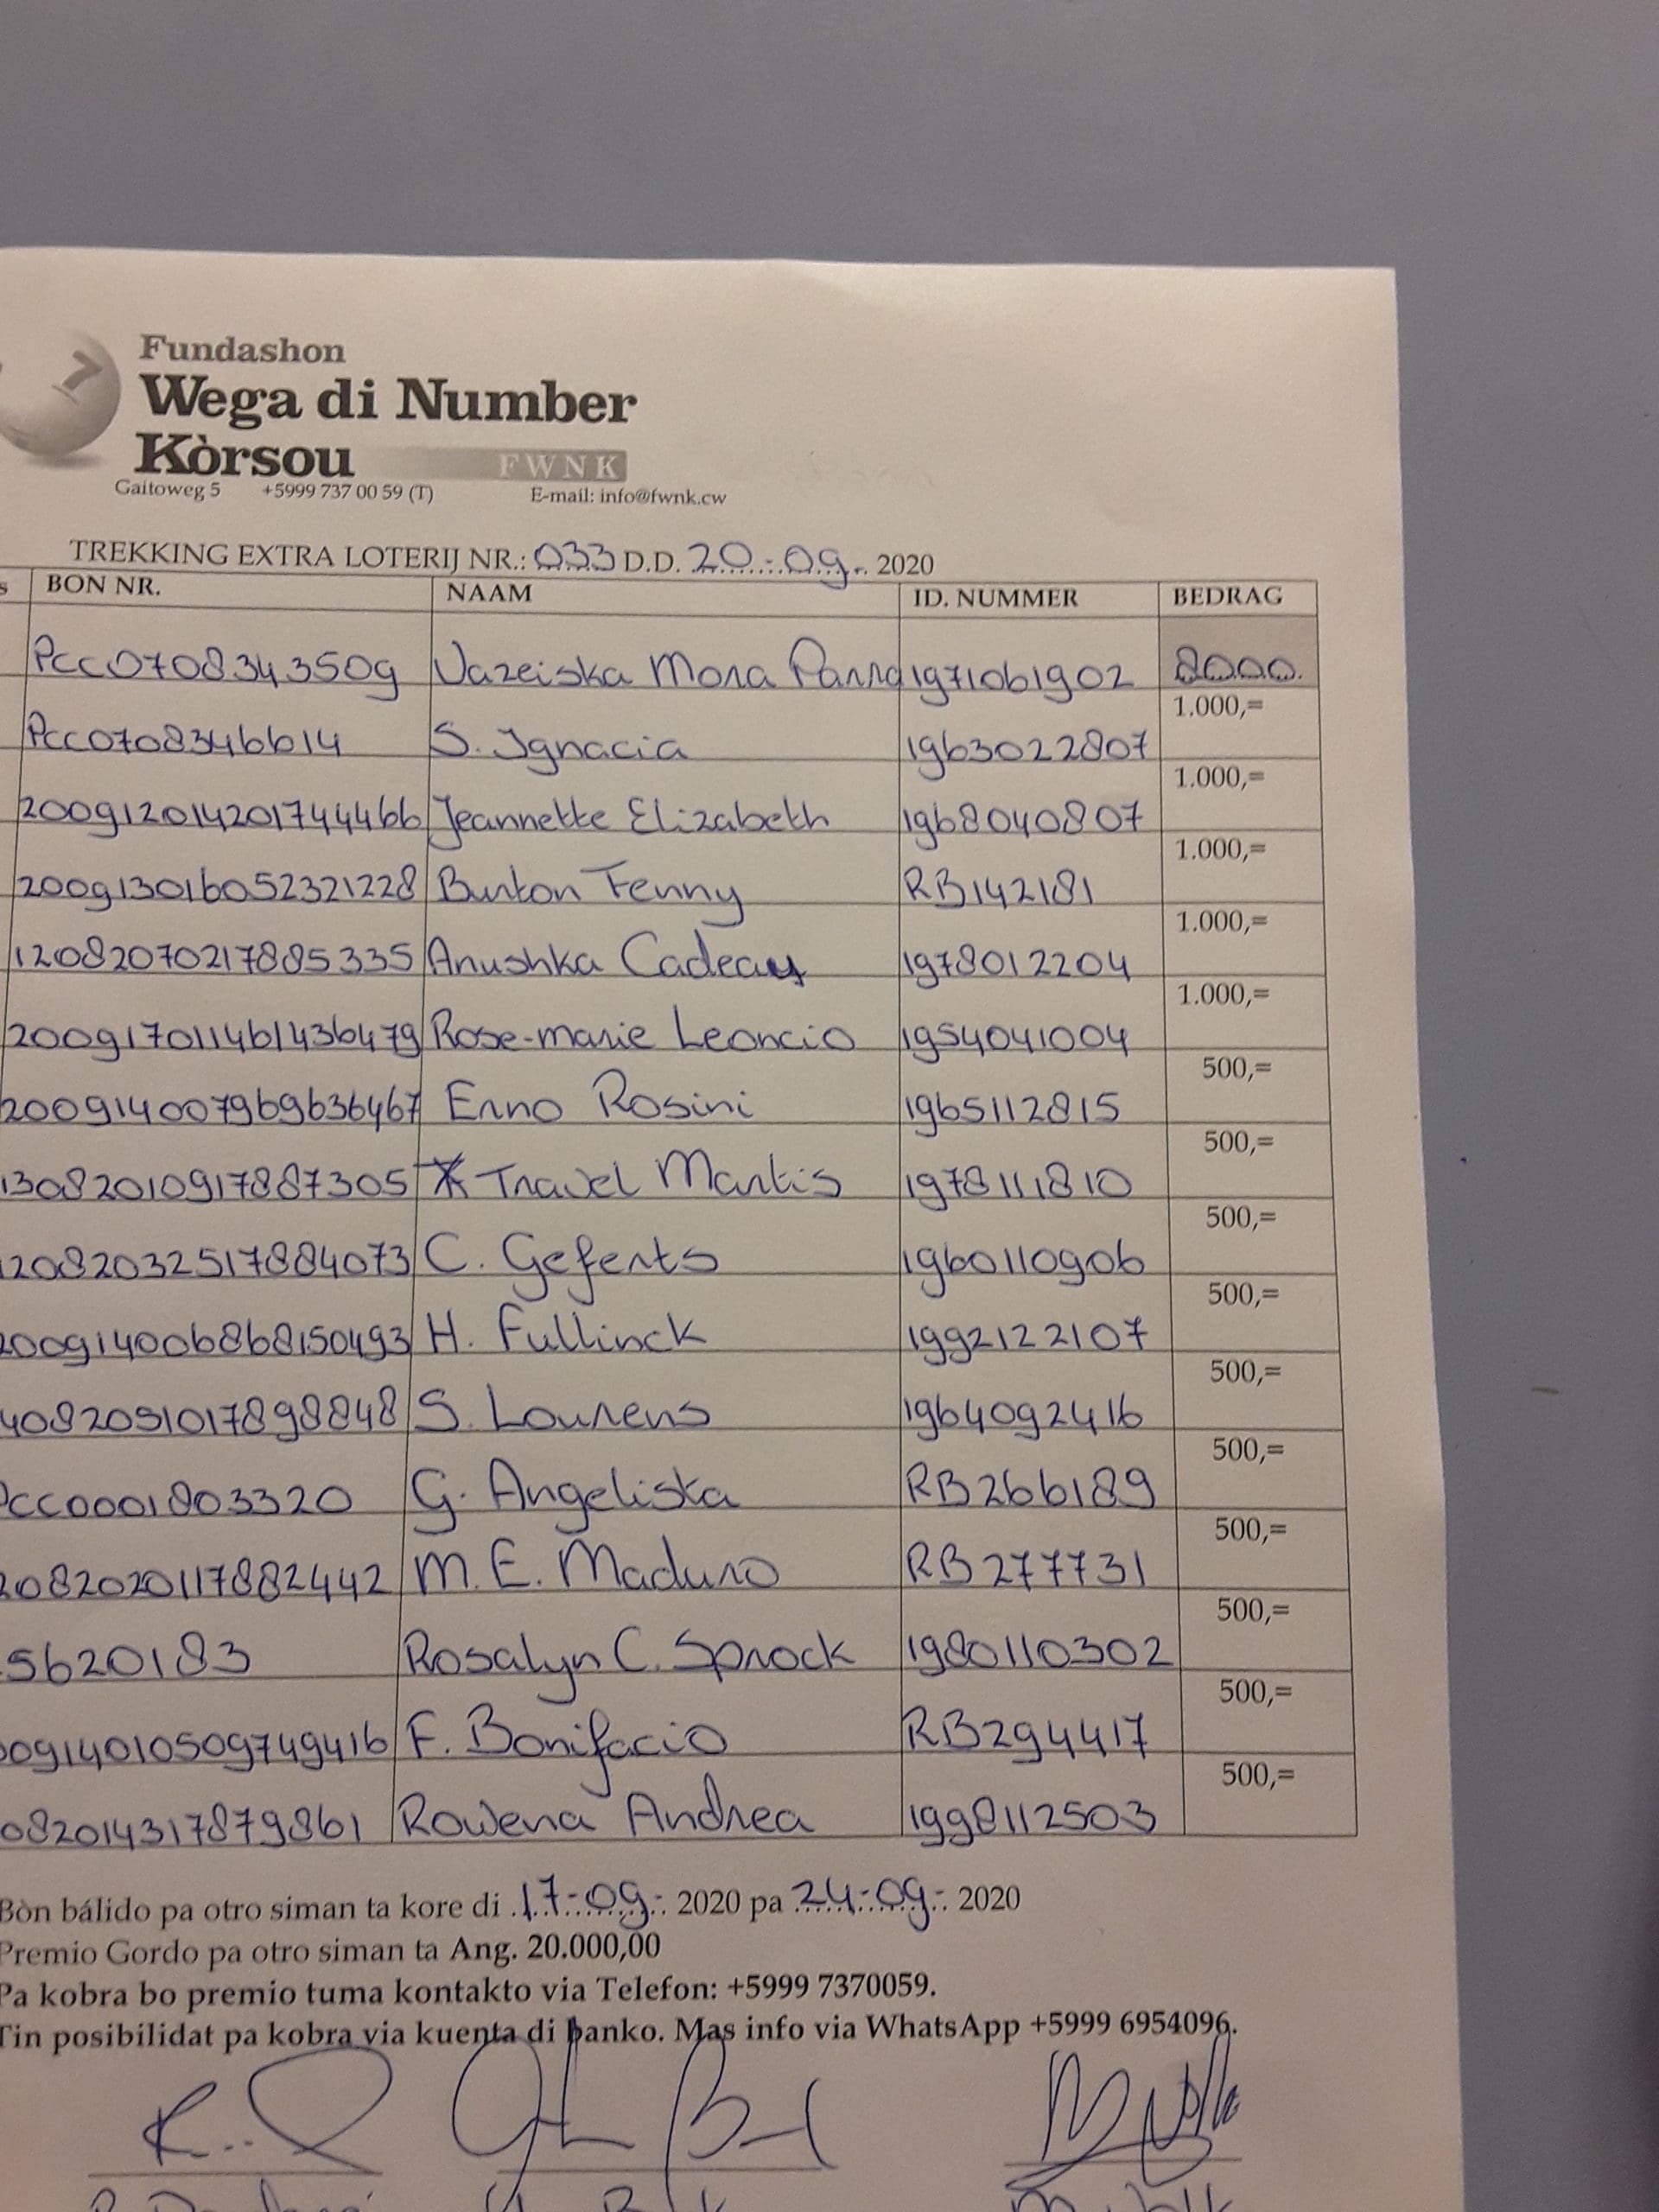 7
Fundashon
Wega di Number
Kòrsou FWNK
Gaitoweg 5 +5999 737 00 59 (T) E-mail: info@fwnk.cw
TREKKING EXTRA LOTERIJ NR.: 033 D.D. 20-09- 2020
s BON NR. NAAM ID. NUMMER BEDRAG
PCC0708343509 Vazeiska Mora Parra 1971061902 8000.
PCC0708346614 S. Ignacia 1963022807 1.000,=
200912014201744466 Jeannette Elizabeth 1968040807 1.000,=
200913016052321228 Burton Fenny RB142181 1.000,=
12082070217885335 Anushka Cadeau 1978012204 1.000,=
200917011461436479 Rose-marie Leoncio 1954041004 1.000,=
200914007969636467 Enno Rosini 1965112815 500,=
13082010917887305 Travel Martis 1978111810 500,=
12082032517884073 C. Geferts 1960110906 500,=
200914006868150493 H. Fullinck 1992122107 500,=
4082051017898848 S. Lourens 1964092416 500,=
PCC0001803320 G. Angeliska RB266189 500,=
2082020117882442 M.E. Maduro RB277731 500,=
5620183 Rosalyn C. Sprock 1980110302 500,=
00914010509749416 F. Bonifacio RB294417 500,=
08201431787​9861 Rowena Andrea 1998112503 500,=
Bòn bálido pa otro siman ta kore di 17-09- 2020 pa 24-09- 2020
Premio Gordo pa otro siman ta Ang. 20.000,00
Pa kobra bo premio tuma kontakto via Telefon: +5999 7370059.
Tin posibilidat pa kobra via kuenta di banko. Mas info via WhatsApp +5999 6954096.